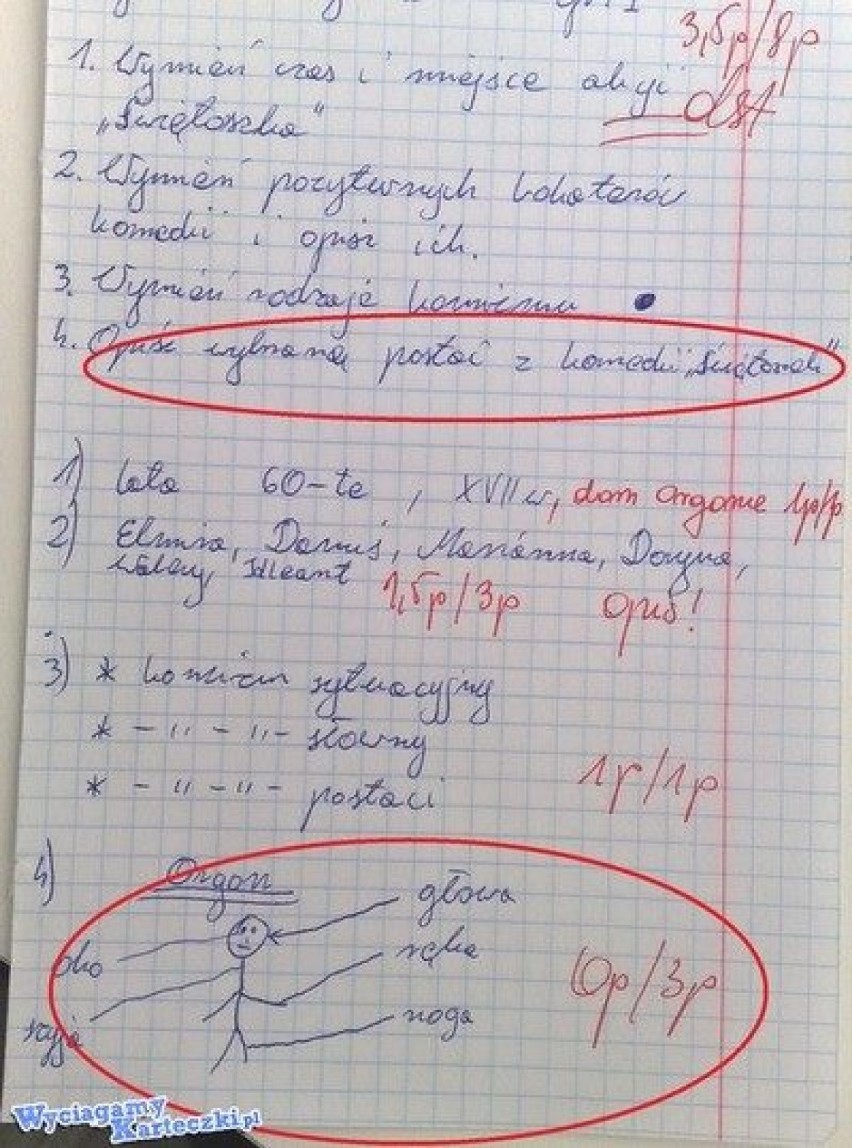 3,5p/8p
1. Wymień czas i miejsce akcji
„Świętoszka"
dst
2. Wymień pozytywnych bohaterów
komedii i opisz ich.
3. Wymień rodzaje komizmu
4. Opisz wybraną postać z komedii „Świętoszek"
1) lata 60-te, XVII w, dom Orgona 1p/1p
2) Elmira, Damis, Marianna, Doryna,
Walery, Kleant 1,5p/3p opis!
3) * komizm sytuacyjny
* - " - " - słowny
* - " - " - postaci
1p/1p
4) Orgon
głowa
oko
ręka
szyja
noga
0p/3p
Wyciagamy
Karteczki.pl